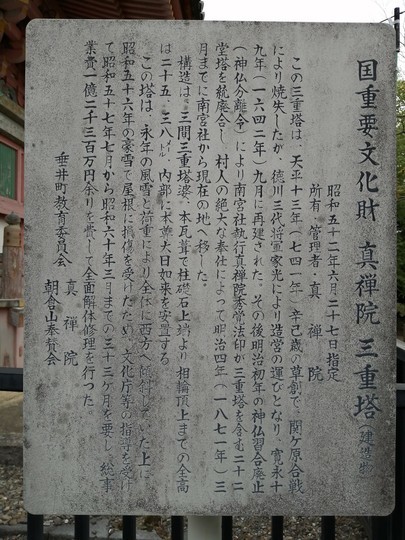 国重要文化財 真禅院 三重塔(建造物)
昭和五十二年六月二十七日指定
所有・管理者・真禅院
この三重塔は、天平十三年(七四一年)辛己歳の草創で、関ケ原合戦
により焼失したが、徳川三代将軍家光により造営の運びとなり、寛永十
九年(一六四二年)九月に再建された。その後明治初年の神仏習合廃止
(神仏分離令)により南宮社執行真禅院秀覚法印が三重塔を含む二十二
堂塔を統廃合し、村人の絶大な奉仕によって明治四年(一八七一年)三
月までに南宮社から現在の地へ移した。
構造は、三間三重塔婆、本瓦葺で柱礎石上端より相輪頂上までの全高
は二十五、三八メートル、内部に木像大日如来を安置する。
この塔は、永年の風雪と荷重により全体に西方へ傾斜していた上に、
昭和五十六年の豪雪で屋根に損傷を受けたため、文化庁等の指導を受け
て昭和五十七年七月から昭和六十年三月までの三十三ケ月を要し、総事
業費一億二千三百万円余りを費して全面解体修理を行った
垂井町教育委員会
真禅院
朝倉山奉賛会